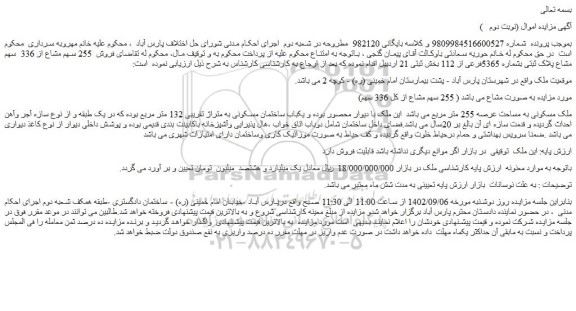 بسمه تعالی
آگهی مزایده اموال (نوبت دوم )
بموجب پرونده شماره 9809984516600527 و کلاسه بایگانی 982120 مطروحه در شعبه دوم اجرای احکام مدنی شورای حل اختلاف پارس آباد ، محکوم علیه خانم مهرویه سرداری محکوم
است در حق محکوم له خانم حوریه سعادتی باوکالت آقای پیمان گنجی ، باتوجه به امتناع محکوم علیه از پرداخت محکوم به و توقیف مال، محکوم له تقاضای فروش 255 سهم مشاع از 336 سهم
مشاع پلاک ثبتی بشماره 5365فرعی از 112 بخش ثبتی 21 اردبیل اقدام نموده که بعد از ارجاع به کارشناسی کارشناس به شرح ذیل ارزیابی نموده است:
موقعیت ملک واقع در شهرستان پارس آباد - پشت بیمارستان امام خمینی (ره) - کوچه 2 می باشد.
مورد مزایده به صورت مشاع می باشد ( 255 سهم مشاع از کل 336 سهم)
ملک مسکونی به مساحت عرصه 255 متر مربع می باشد این ملک با دیوار محصور بوده و یکباب ساختمان مسکونی به متراژ تقریبی 132 متر مربع بوده که در یک طبقه و از نوع سازه آجر وآهن
احداث گردیده و قدمت سازه ای آن بالغ بر 20سال می باشد.فضای داخل ساختمان شامل دوباب اتاق خواب ،هال پذیرایی وآشپزخانه باکابینت بندی قدیمی بوده و پوشش داخلی دیوار از نوع کاغذ دیواری
می باشد .ضمنا سرویس بهداشتی و حمام درحیاط خلوت واقع گردیده و کف حیاط به صورت موزائیک کاری وساختمان دارای امتیازات شهری می باشد
ارزش پایه: این ملک توقیفی در بازار اگر موانع دیگری نداشته باشد قابلیت فروش دارد
باتوجه به موارد معنونه ارزش پایه کارشناسی ملک در بازار 18/000/000/000 ریال معادل یک میلیارد و هشتصد میلیون تومان تعیین و بر آورد می گردد.
توضیحات : به علت نوسانات بازار ارزش پایه تعیینی به مدت شش ماه معتبر می باشد
بنابراین جلسه مزایده روز دوشنبه مورخه 1402/09/06 از ساعت 11:00 الی 11:30 صبح واقع درپارس آباد -خیابان امام خمینی (ره) - ساختمان دادگستری -طبقه همکف شعبه دوم اجرای احکام
مدنی ، در حضور نماینده دادستان محترم پارس آباد برگزار خواهد شدو مزایده از مبلغ معینه کارشناسی شروع و به بالاترین قیمت پیشنهادی فروخته خواهد شد.طالبین می توانند در موعد مقرر فوق در
جلسه مزایده شرکت نموده و قیمت پیشنهادی خودشان را اعلام نمایند بدیهی است مورد مزایده به بالاترین قیمت پیشنهادی واگذار خواهد گردید و برنده مزایده ده درصد ثمن معامله را فی المجلس
پرداخت و نسبت به مابقی آن حداکثر یکماه مهلت داده خواهد داشت در صورت عدم واریز در مهلت مقرر ده درصد واریزی به نفع صندوق دولت ضبط خواهد شد.
۰۲۱-۸۸۳۴۹۶۷۰-۵